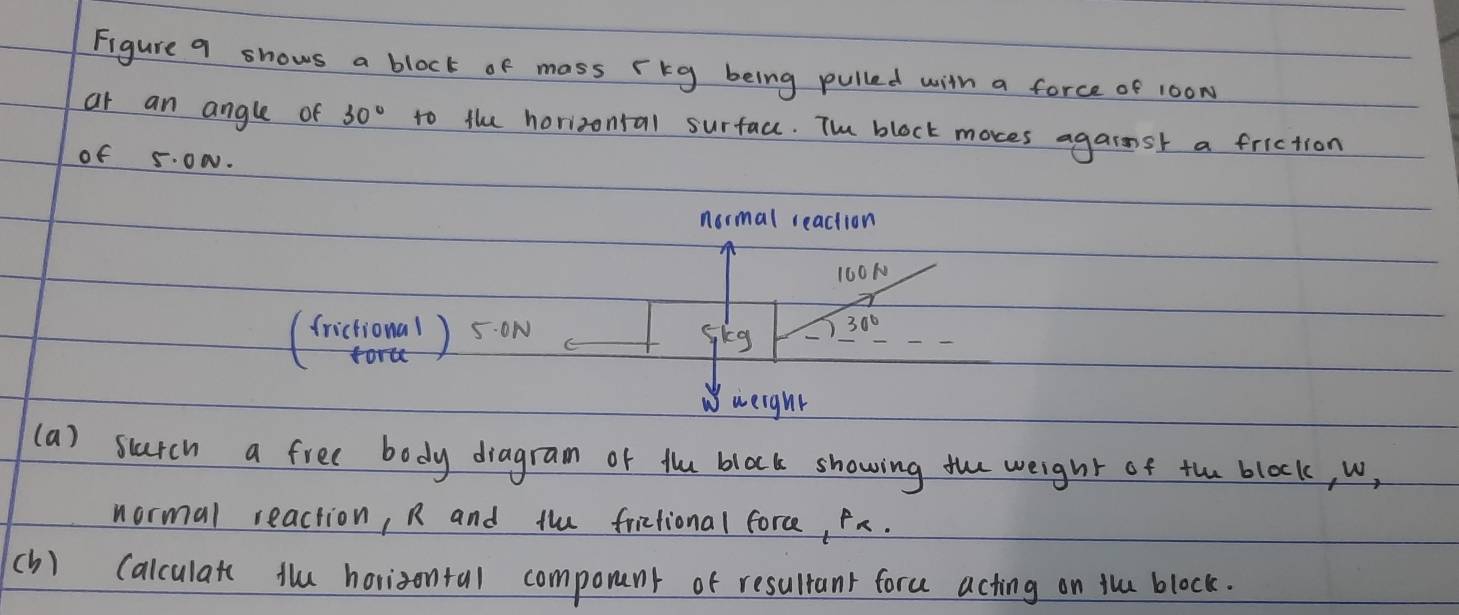 Figure 9 shows a block of mass 5kg being pulled with a force of 100N
at an angle of 30° to the horizontal surface. The block moves against a friction
of 5.0N.
normal reaction
100N
(frictional force) 5.0N
5kg
30°
W weight
(a) Sketch a free body diagram of the block showing the weight of the block, W,
normal reaction, R and the frictional force,
(b) Calculate the horizontal component of resultant force acting on the block.